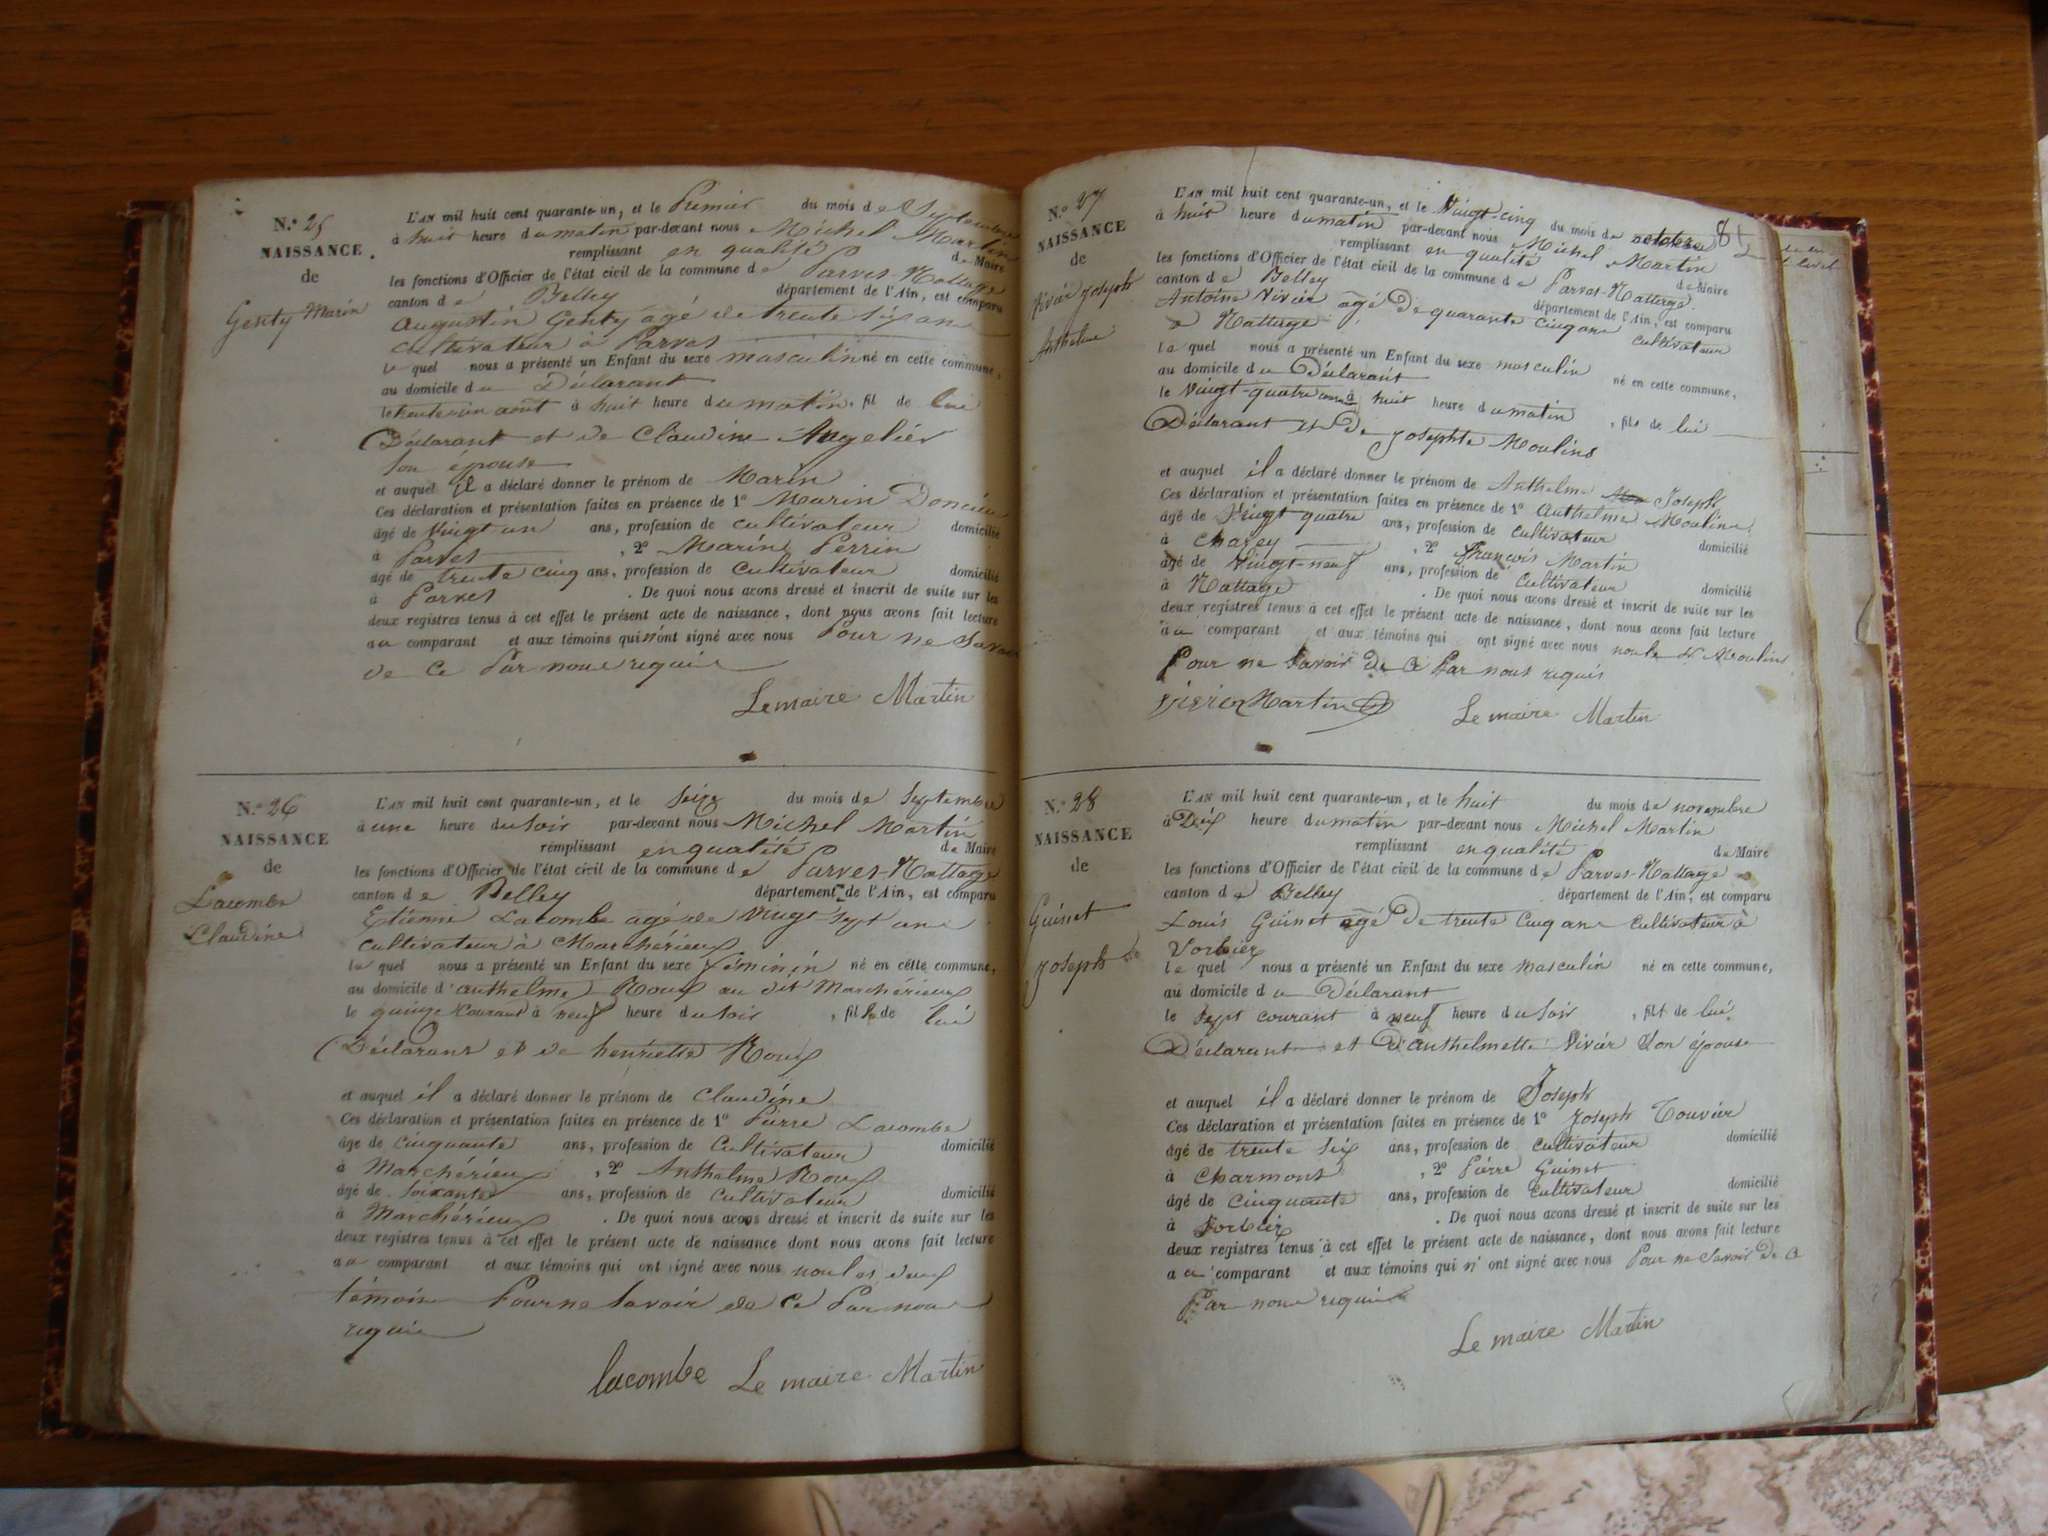 N.° 25
NAISSANCE
de
Genty Marin
L'AN mil huit cent quarante-un, et le Premier du mois de Septembre
à huit heure du matin par-devant nous Michel Martin
remplissant en qualité de Maire
les fonctions d'Officier de l'état civil de la commune de Parves-Nattage
canton de Belley département de l'Ain, est comparu
Augustin Genty agé de trente six ans
cultivateur à Parves
le quel nous a présenté un Enfant du sexe masculin né en cette commune,
au domicile du Déclarant
le trente un août à huit heure du matin, fil de lui
Déclarant et de Claudine Angelier
son épouse
et auquel il a déclaré donner le prénom de Marin
Ces déclaration et présentation faites en présence de 1° Marin
âgé de vingt un ans, profession de cultivateur domicilié
à Parves, 2° Marin Perrin
âgé de trente cinq ans, profession de cultivateur domicilié
à Parves. De quoi nous avons dressé et inscrit de suite sur les
deux registres tenus à cet effet le présent acte de naissance, dont nous avons fait lecture
au comparant et aux témoins qui n'ont signé avec nous Pour ne Savoir
de ce Par nous requis
Le maire Martin
N.° 26
NAISSANCE
de
Lacombe
Claudine
L'AN mil huit cent quarante-un, et le seize du mois de Septembre
à une heure du soir par-devant nous Michel Martin
remplissant en qualité de Maire
les fonctions d'Officier de l'état civil de la commune de Parves-Nattage
canton de Belley département de l'Ain, est comparu
Etienne Lacombe agé de vingt-sept ans
cultivateur à Marchérieux
le quel nous a présenté un Enfant du sexe féminin né en cette commune,
au domicile d'anthelme Roux au dit Marchérieux
le quinze courant à neuf heure du soir, fille de lui
Déclarant et de henriette Roux
et auquel il a déclaré donner le prénom de Claudine
Ces déclaration et présentation faites en présence de 1° Pierre Lacombe
âgé de cinquante ans, profession de Cultivateur domicilié
à Marchérieux, 2° Anthelme Roux
âgé de soixante ans, profession de cultivateur domicilié
à Marchérieux. De quoi nous avons dressé et inscrit de suite sur les
deux registres tenus à cet effet le présent acte de naissance dont nous avons fait lecture
au comparant et aux témoins qui ont signé avec nous non les deux
témoins Pour ne Savoir de ce Par nous
requis
lacombe Le maire Martin
8
N.° 27
NAISSANCE
de
Vivier joseph
Anthelme
L'AN mil huit cent quarante-un, et le Vingt-cinq du mois de octobre
à huit heure du matin par-devant nous Michel Martin
remplissant en qualité de Maire
les fonctions d'Officier de l'état civil de la commune de Parves-Nattage
canton de Belley département de l'Ain, est comparu
Antoine Vivier âgé De quarante cinq ans cultivateur
à Nattage
le quel nous a présenté un Enfant du sexe masculin né en cette commune,
au domicile du Déclarant
le Vingt-quatre à huit heure du matin, fils de lui
Déclarant et De josephte Moulins
et auquel il a déclaré donner le prénom de Anthelme Joseph
Ces déclaration et présentation faites en présence de 1° Anthelme Moulins
âgé de Vingt quatre ans, profession de cultivateur domicilié
à Chavey, 2° François Martin
âgé de Vingt-neuf ans, profession de cultivateur domicilié
à Nattage. De quoi nous avons dressé et inscrit de suite sur les
deux registres tenus à cet effet le présent acte de naissance, dont nous avons fait lecture
au comparant et aux témoins qui ont signé avec nous non le dt Moulins
Pour ne Savoir De ce Par nous requis
vivier Martin Le maire Martin
N.° 28
NAISSANCE
de
Guinet
joseph
L'AN mil huit cent quarante-un, et le huit du mois de novembre
à Dix heure du matin par-devant nous Michel Martin
remplissant en qualité de Maire
les fonctions d'Officier de l'état civil de la commune de Parves-Nattage
canton de Belley département de l'Ain, est comparu
Louis Guinet agé De trente cinq ans cultivateur à
Sorbier
le quel nous a présenté un Enfant du sexe masculin né en cette commune,
au domicile du Déclarant
le Sept courant à neuf heure du soir, fils de lui
Déclarant et D'anthelmette Vivier Son épouse
et auquel il a déclaré donner le prénom de Joseph
Ces déclaration et présentation faites en présence de 1° Joseph Touvier
âgé de trente six ans, profession de cultivateur domicilié
à Charmont, 2° Pierre Guinet
âgé de cinquante ans, profession de cultivateur domicilié
à Sorbier. De quoi nous avons dressé et inscrit de suite sur les
deux registres tenus à cet effet le présent acte de naissance, dont nous avons fait lecture
au comparant et aux témoins qui n'ont signé avec nous Pour ne Savoir De ce
Par nous requis
Le maire Martin